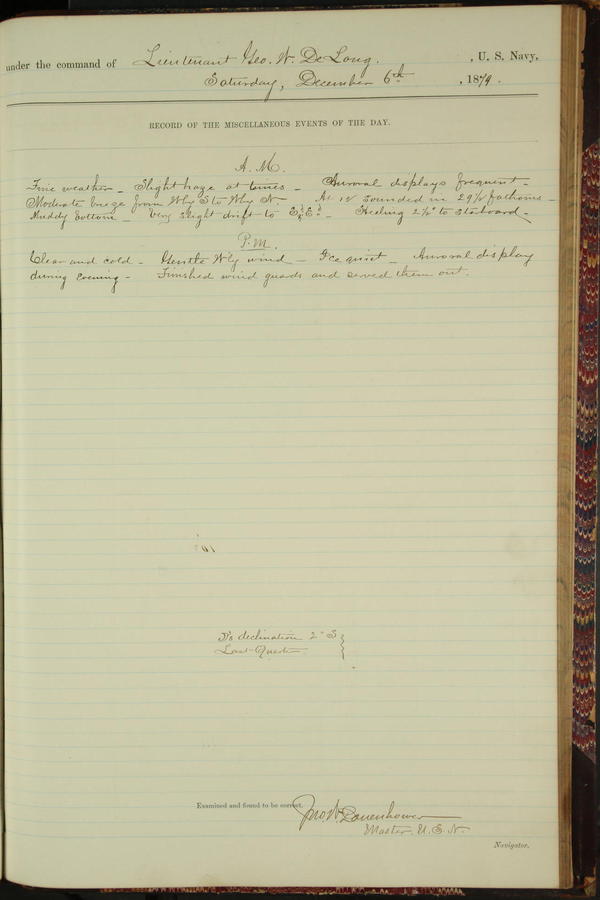 under the command of Lieutenant Geo. W. De Long. , U. S. Navy,
Saturday, December 6th , 1879.
RECORD OF THE MISCELLANEOUS EVENTS OF THE DAY.
A. M.
Fine weather – Slight haze at times – Auroral displays frequent –
Moderate breeze from Wly S to Wly N. – At 12 sounded in 29½ fathoms –
Muddy bottom – Very slight drift to – Heeling 2½° to starboard –
P. M.
Clear and cold – Gentle Wly wind – Ice quiet – Auroral display
during evening – Finished wind guards and served them out.
declination 2° S }
Last Quarter
Examined and found to be correct.
Jno. W. Danenhower
Master. U. S. N.
Navigator.